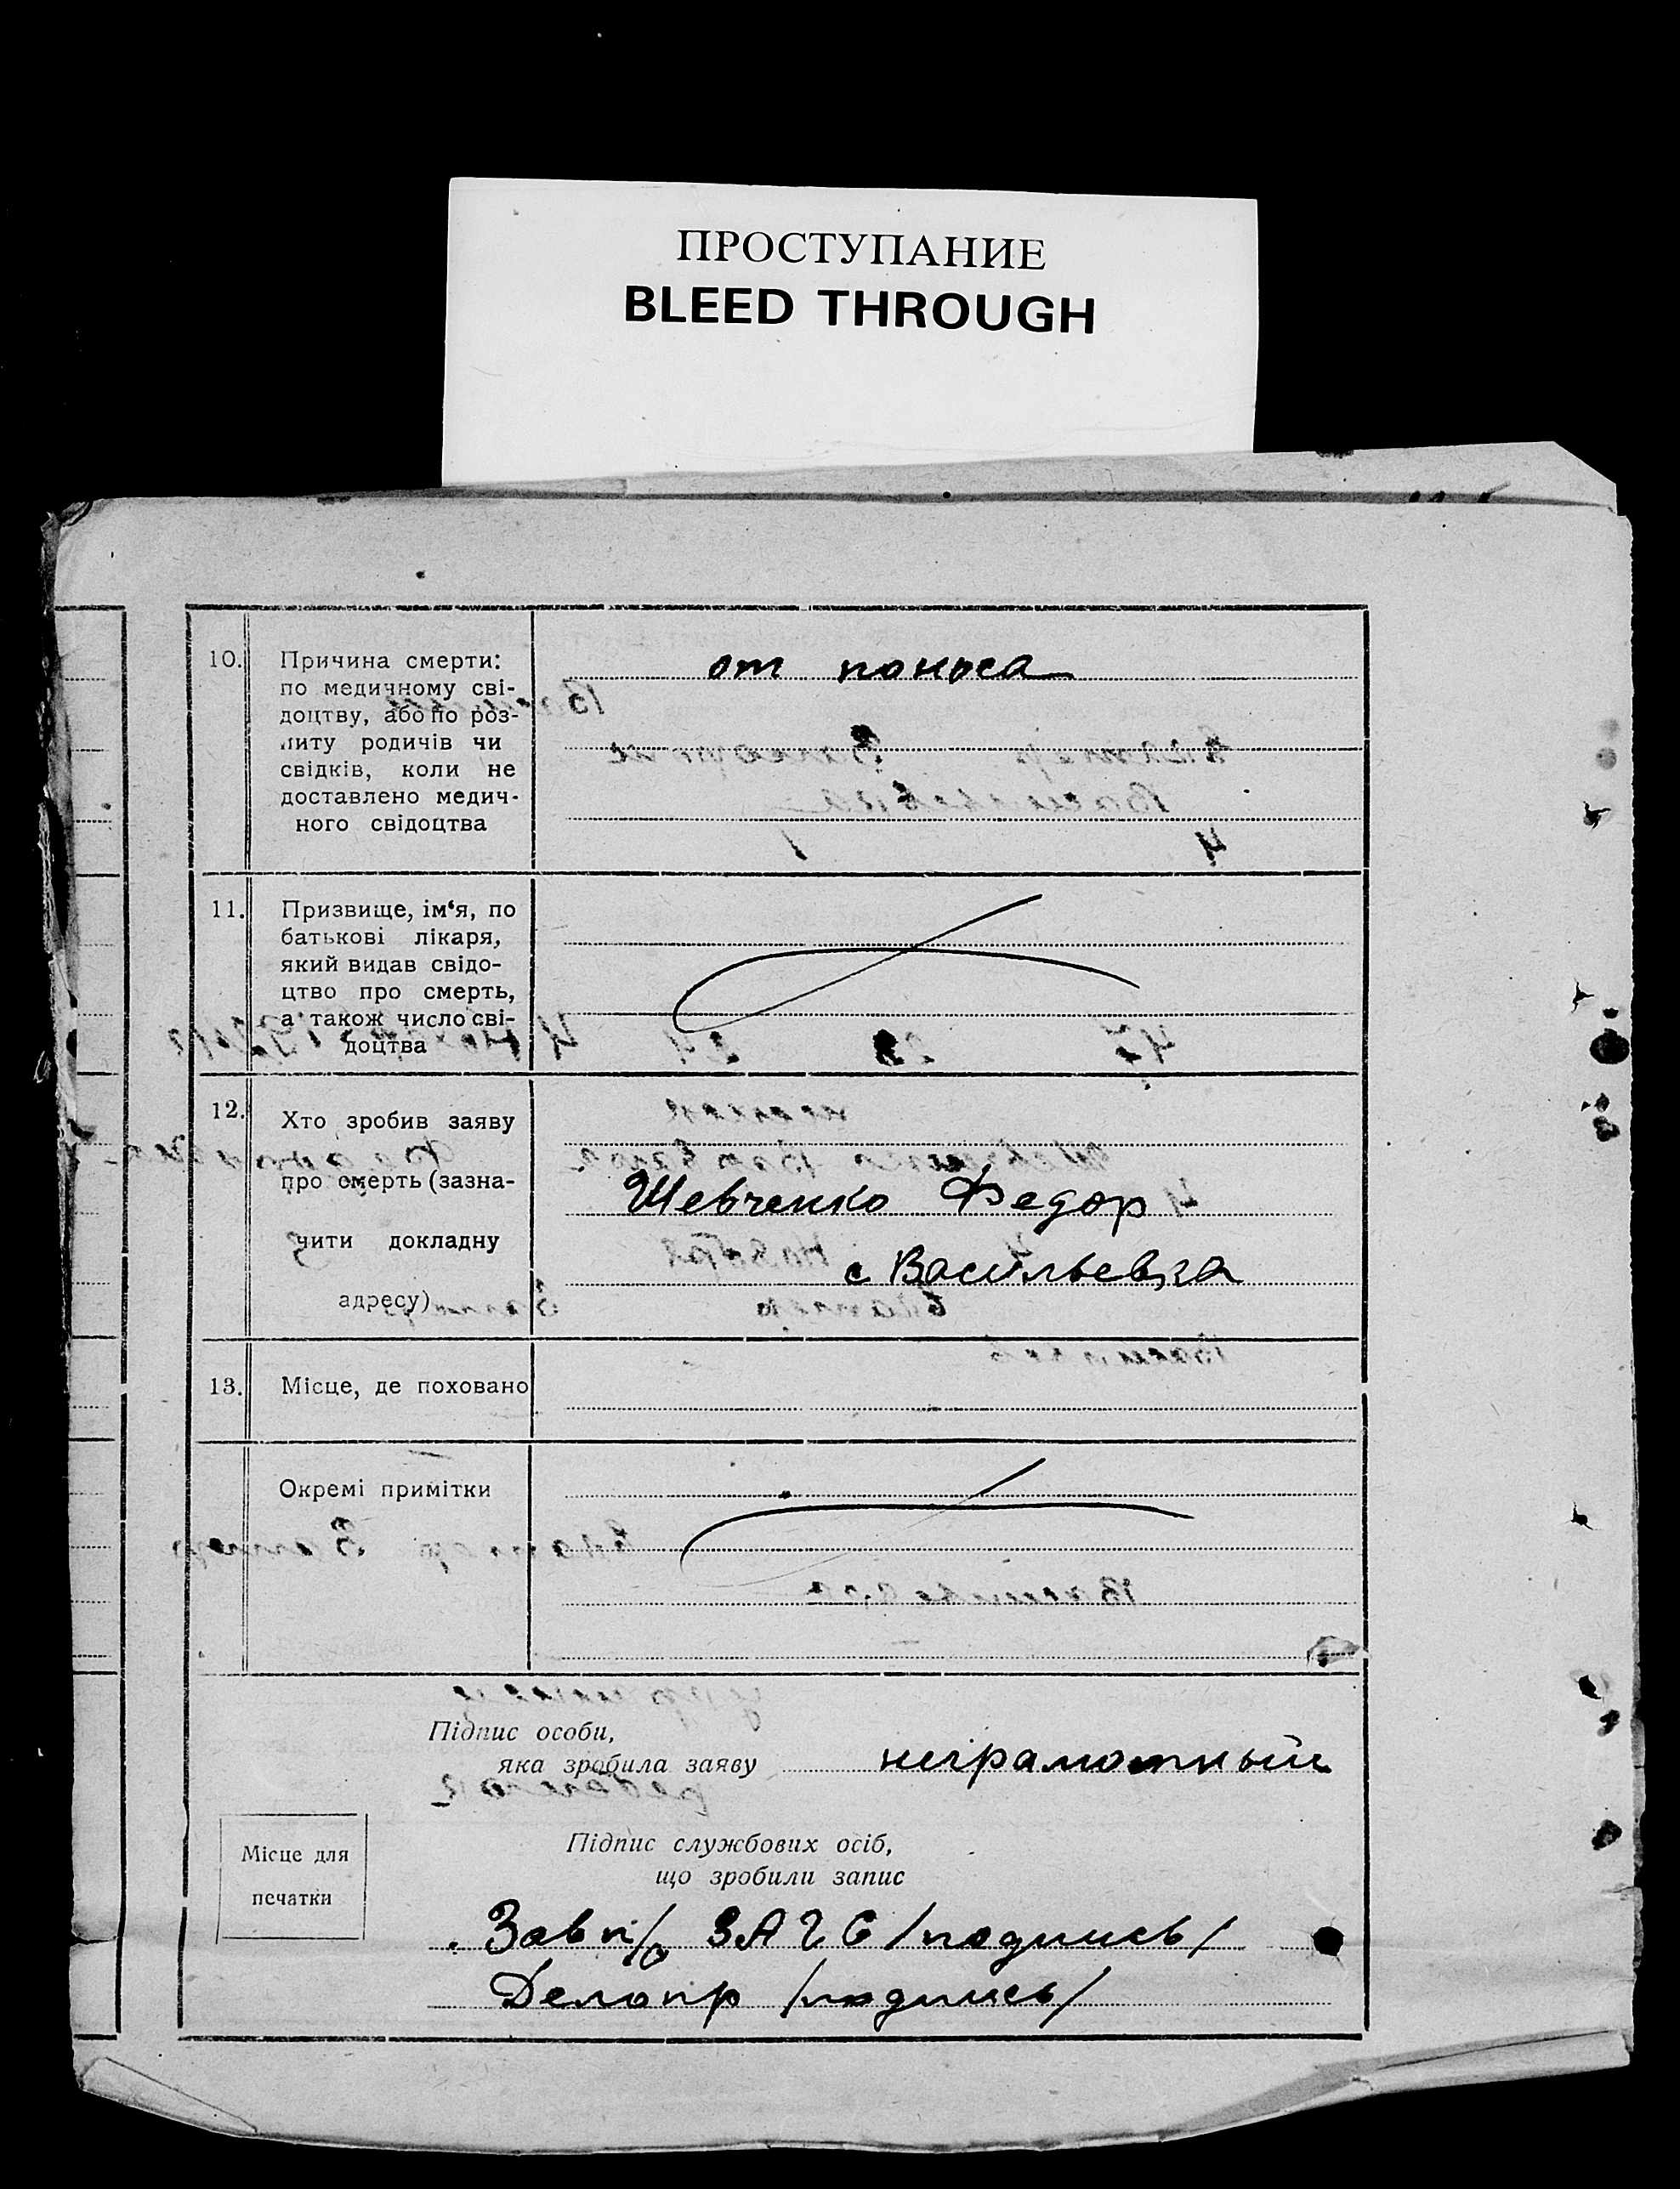 ПРОСТУПАНИЕ
BLEED THROUGH
10. Причина смерти: от поноса
по медичному сві-
доцтву, або по роз-
питу родичів чи
свідків, коли не
доставлено медич-
ного свідоцтва
11. Призвище, ім‘я, по
батькові лікаря,
який видав свідо-
цтво про смерть,
а також число сві-
доцтва
12. Хто зробив заяву
про смерть (зазна-
Шевченко Федор
чити докладну
с Васильевка
адресу)
13. Місце, де поховано
Окремі примітки
Підпис особи,
яка зробила заяву неграмотный
Місце для
печатки
Підпис службових осіб,
що зробили запис
Зав п/о ЗАГС /подпись/
Делопр /подпись/